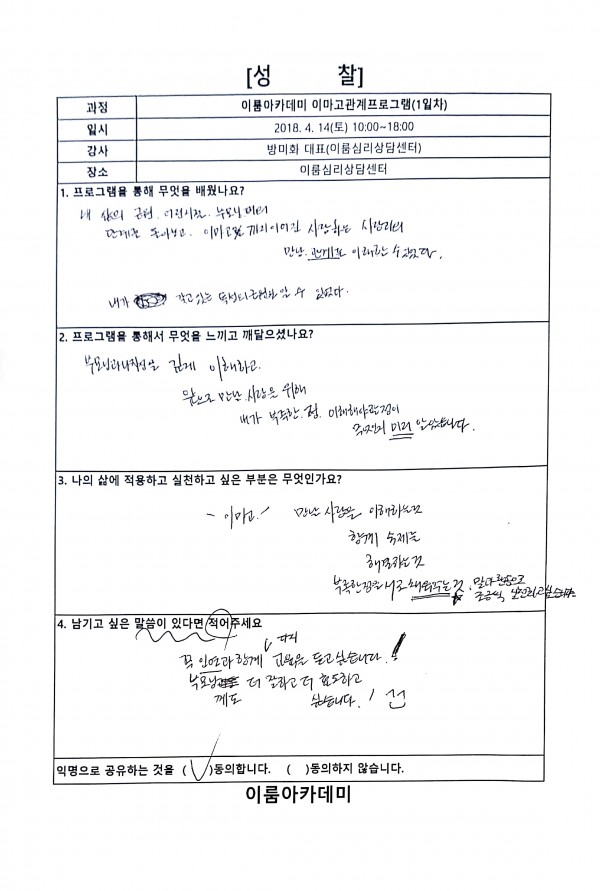 [성 찰]
과정 이룸아카데미 이마고관계프로그램(1일차)
일시 2018. 4. 14(토) 10:00~18:00
강사 방미화 대표(이룸심리상담센터)
장소 이룸심리상담센터
1. 프로그램을 통해 무엇을 배웠나요?
내 삶의 근원, 어린시절, 부모님과의
관계를 돌아보고, 이마고로 사랑하는 사람과의
만남, 관계를 이해할 수 있었다.
내가 갖고있는 알 수 있었다.
2. 프로그램을 통해서 무엇을 느끼고 깨달으셨나요?
부모님과 나자신을 깊게 이해하고
앞으로 만날 사람을 위해
내가 부족한 점, 이해해야할 점이
무엇인지 미리 알았습니다.
3. 나의 삶에 적용하고 실천하고 싶은 부분은 무엇인가요?
- 이마고! 만난 사람을 이해하는것
함께 숙제를
해결하는것
부족한점을 서로 채워주는것
4. 남기고 싶은 말씀이 있다면 적어주세요
다시
꼭 인연과 함께 교육을 듣고싶습니다!
부모님께도 더 잘하고 더 효도하고
싶습니다!
익명으로 공유하는 것을 (✓)동의합니다. ( )동의하지 않습니다.
이룸아카데미